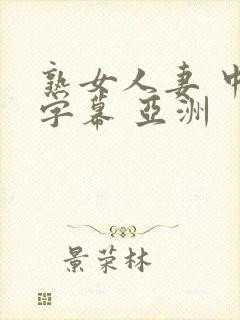 熟女人妻 中
字幕 亞洲
景荣林